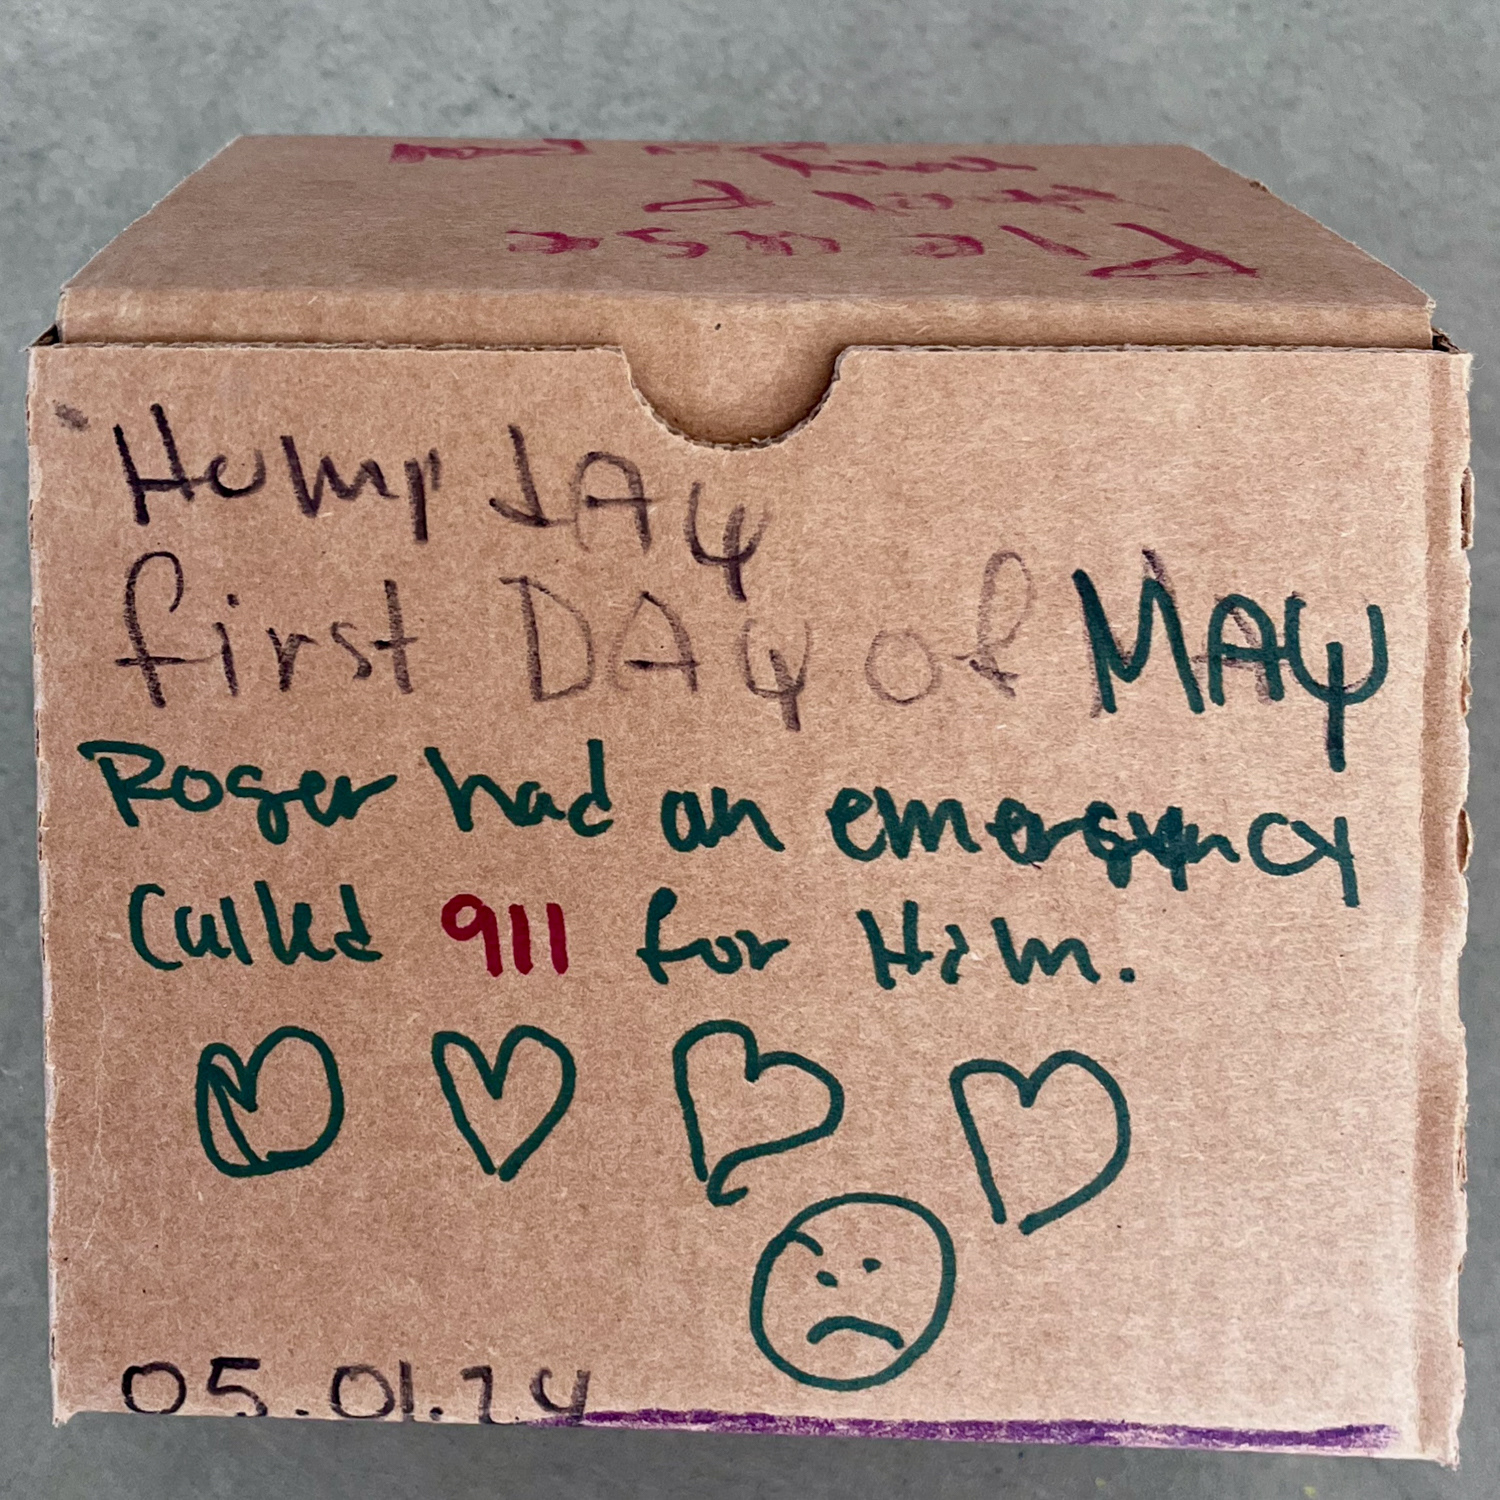 Hump dAy
first DAy of MAy
Roger had an emergency
Called 911 for Him.
05.01.24